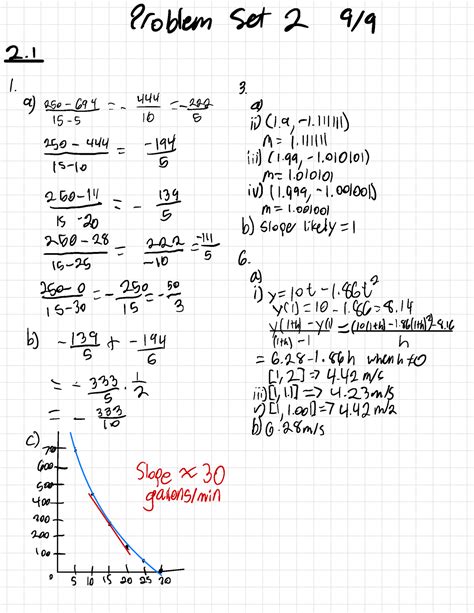 Problem Set 2 9/9
2.1
1.
a) 250-694 / 15-5 = - 444 / 10 = -222 / 5
250-444 / 15-10 = -194 / 5
250-111 / 15-20 = - 139 / 5
250-28 / 15-25 = 222 / -10 = -111 / 5
250-0 / 15-30 = - 250 / 15 = - 50 / 3
b) - 139 / 5 + -194 / 5
= - 333 / 5 · 1 / 2
= - 333 / 10
c)
700
600
500
400
300
200
100
0 5 10 15 20 25 30
Slope ≈ 30
gallons/min
3.
a)
ii) (1.9, -1.11111)
m = 1.11111
iii) (1.99, -1.010101)
m = 1.010101
iv) (1.999, -1.001001)
m = 1.001001
b) slope likely = 1
6.
a)
i) y = 10t - 1.86t²
y(1) = 10 - 1.86 = 8.14
y(1+h) - y(1) / (1+h) - 1 = (10(1+h) - 1.86(1+h)² - 8.14 / h
= 6.28 - 1.86h when h ≠ 0
[1, 2] => 4.42 m/s
iii) [1, 1.1] => 4.23 m/s
v) [1, 1.001] => 4.42 m/2
b) 6.28 m/s